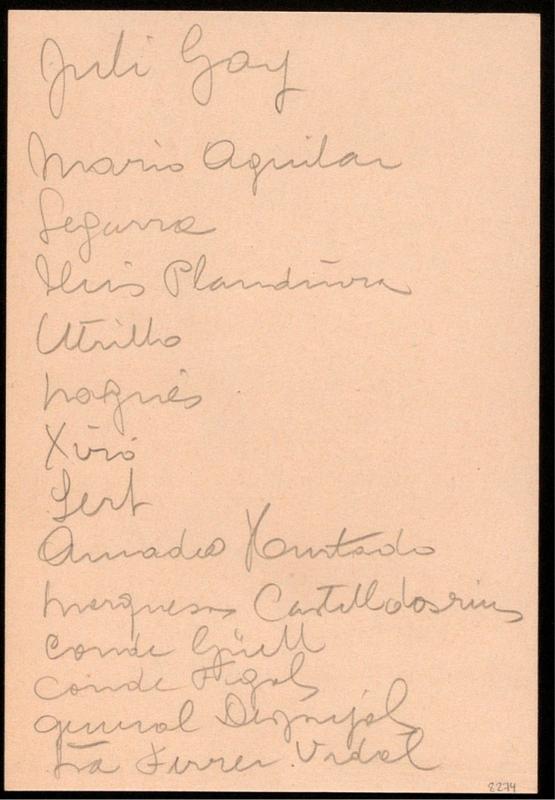 Juli Gay
Mario Aguilar
Segarra
Lluis Plandiura
Utrillo
Nogués
Xiró
Sert
Amadeo Hurtado
Marquesa Castelldosrius
Conde Güell
Conde Fígols
general Despujols
Sra Ferrer. Vidal
8274